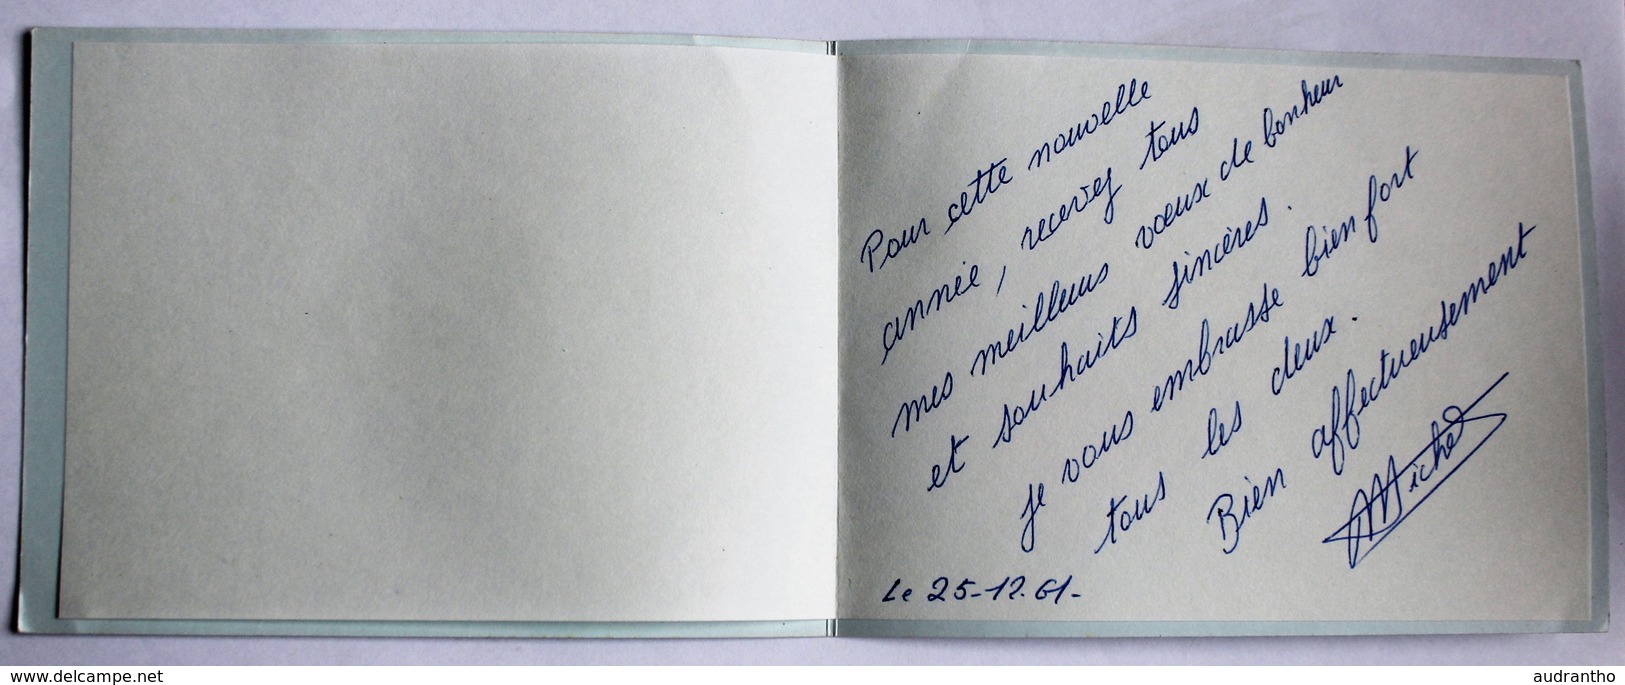 Pour cette nouvelle
année, recevez tous
mes meilleurs vœux de bonheur
et souhaits sincères.
je vous embrasse bien fort
tous les deux.
Bien affectueusement
Michel
Le 25-12.61-
www.delcampe.net
audrantho